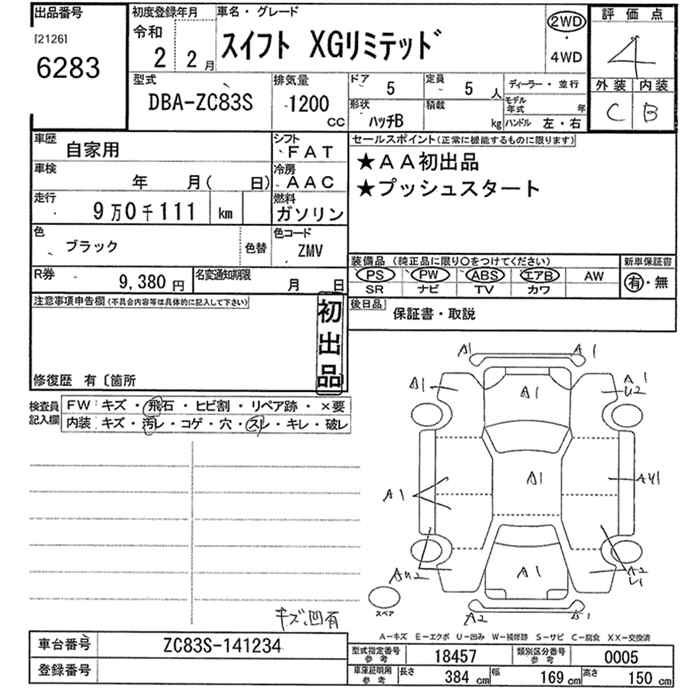 出品番号
[2126]
6283
初度登録年月
令和
2 2月
車名・グレード
スイフト XGリミテッド
2WD
・
4WD
評価点
4
外装 内装
C B
型式
DBA-ZC83S
排気量
1200
CC
ドア 5
定員 5 人
ディーラー・並行
形状 ハッチB
積載 kg
モデル年式 年
ハンドル 左・右
車歴 自家用
シフト FAT
車検 年 月( 日)
冷房 AAC
走行 9万0千111 km
燃料 ガソリン
色 ブラック 色替
色コード ZMV
R券 9,380円
名変通知期限 月 日
セールスポイント(正常に機能するものに限ります)
★AA初出品
★プッシュスタート
装備品(純正品に限り○をつけてください)
新車保証書
PS PW ABS エアB AW
SR ナビ TV カワ
有・無
後日品 保証書・取説
注意事項申告欄(不具合内容等は具体的に記入して下さい)
初出品
修復歴 有〔箇所
検査員記入欄
FW キズ・飛石・ヒビ割・リペア跡・×要
内装 キズ・汚レ・コゲ・穴・スレ・キレ・破レ
A1 A1
A1 A1 A U2 1
A1 A1 AU1
AU2 A1 A2 U1
スペア
A2 B1
キズ、凹有
A-キズ E-エクボ U-凹み W-補修跡 S-サビ C-腐食 XX-交換済
車台番号 ZC83S-141234
登録番号
型式指定番号参考 18457
類別区分番号参考 0005
車庫証明用参考 長さ 384 cm 幅 169 cm 高さ 150 cm